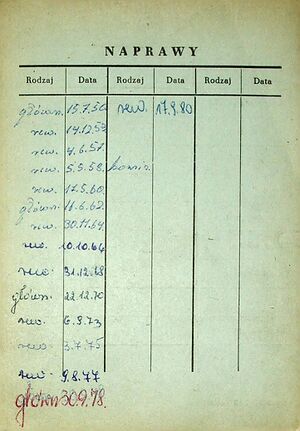 NAPRAWY
Rodzaj Data Rodzaj Data Rodzaj Data
główn. 15.7.50 rew. 17.9.80
rew. 14.12.53
rew. 4.6.57.
rew. 5.5.58.
rew. 17.5.60.
główn. 16.6.62.
rew. 30.11.64
rew. 10.10.66
rew. 31.12.68
główn. 22.12.70
rew. 6.9.73
rew. 3.7.75
rew. 9.8.77
główn 30.9.78.